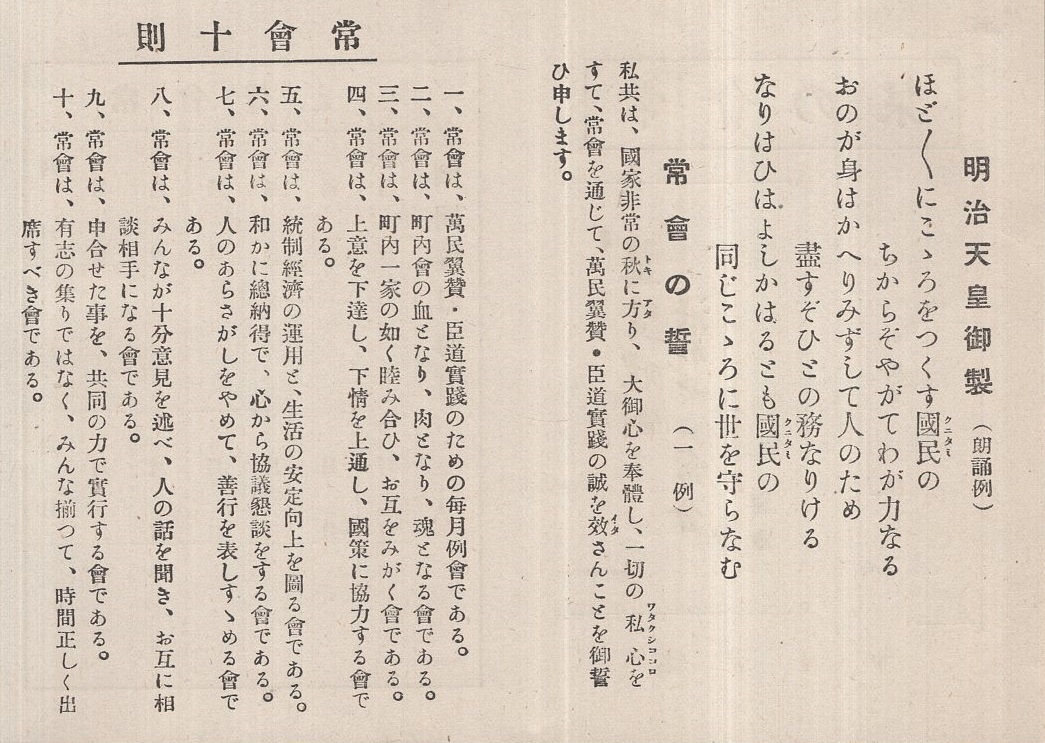 明治天皇御製（朗誦例）
ほど〳〵にこゝろをつくす國民の
ちからぞやがてわが力なる
おのが身はかへりみずして人のため
盡すぞひとの務なりける
なりはひはよしかはるとも國民の
同じこゝろに世を守らなむ
常會の誓（一例）
私共は、國家非常の秋に方り、大御心を奉體し、一切の私心を
すて、常會を通じて、萬民翼賛・臣道實踐の誠を效さんことを御誓
ひ申します。
常會十則
一、常會は、萬民翼賛・臣道實踐のための毎月例會である。
二、常會は、町內會の血となり、肉となり、魂となる會である。
三、常會は、町內一家の如く睦み合ひ、お互をみがく會である。
四、常會は、上意を下達し、下情を上通し、國策に協力する會で
ある。
五、常會は、統制經濟の運用と、生活の安定向上を圖る會である。
六、常會は、和かに總納得で、心から協議懇談をする會である。
七、常會は、人のあらさがしをやめて、善行を表しすゝめる會で
ある。
八、常會は、みんなが十分意見を述べ、人の話を聞き、お互に相
談相手になる會である。
九、常會は、申合せた事を、共同の力で實行する會である。
十、常會は、有志の集りではなく、みんな揃つて、時間正しく出
席すべき會である。